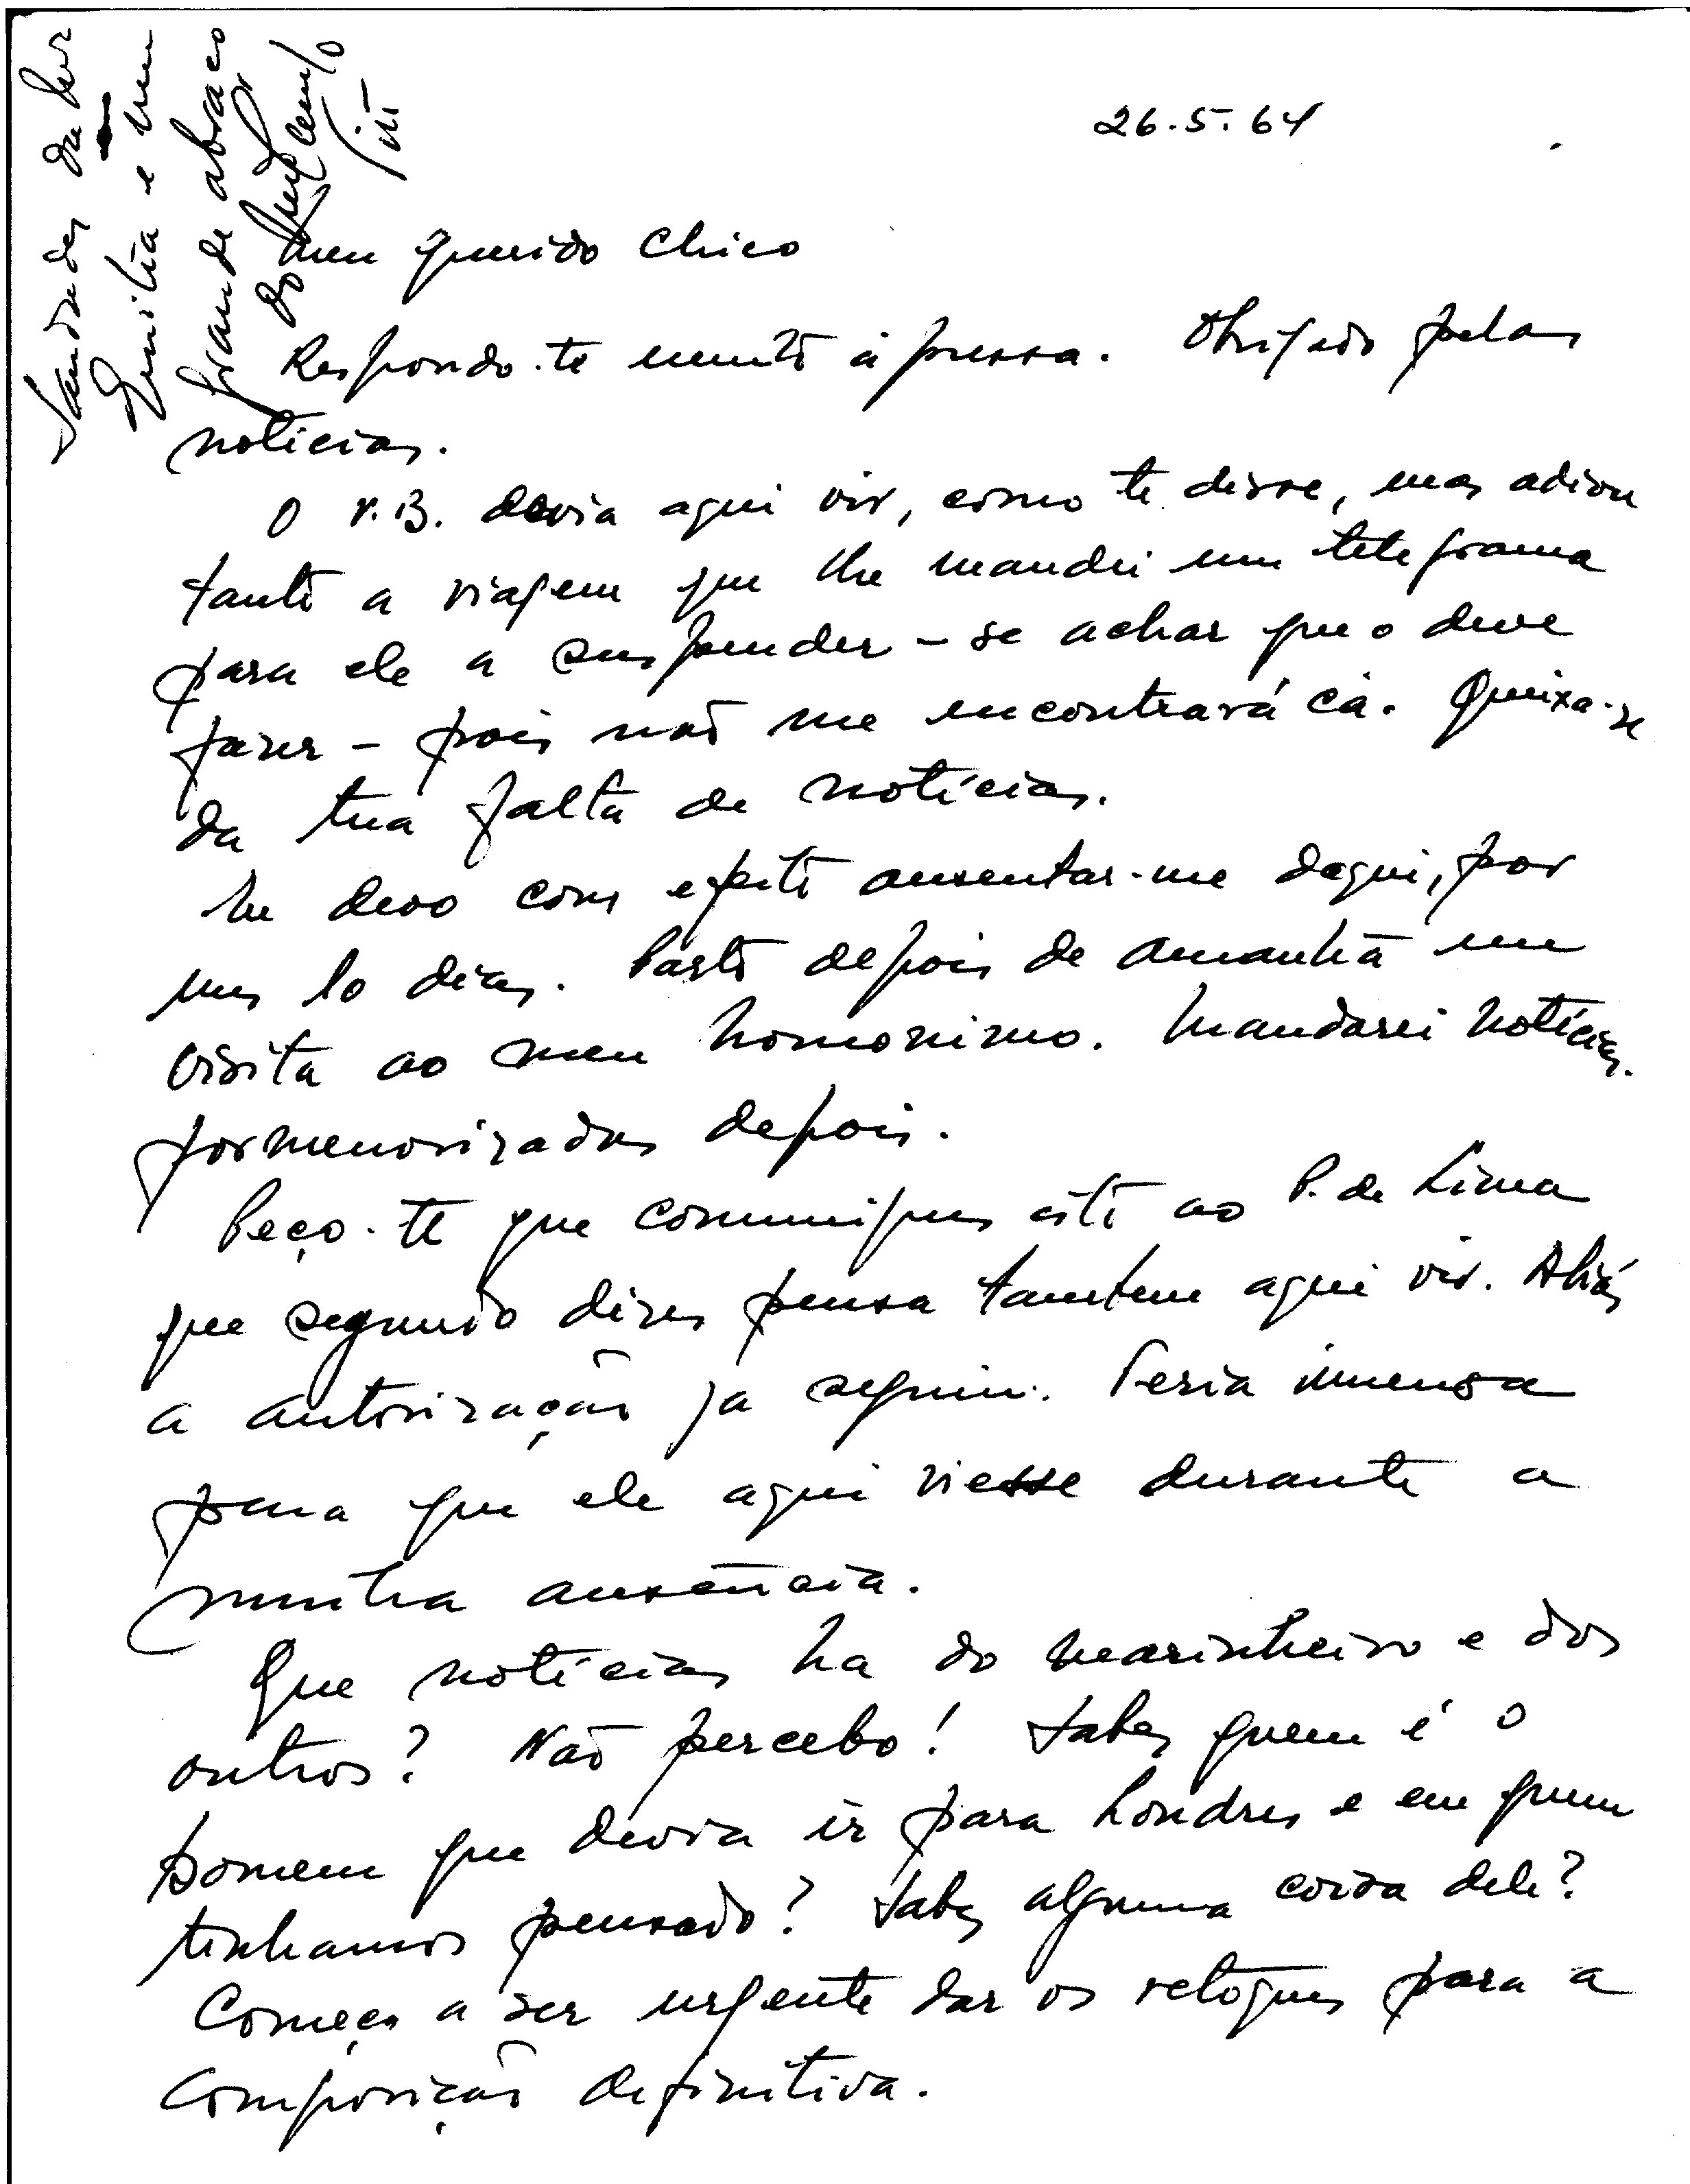 26.5.64
Meu querido Chico
Respondo-te muito à pressa. Obrigado pelas
notícias.
O V.B. devia aqui vir, como te disse, mas adiou
tanto a viagem que lhe mandei um telegrama
para ele a suspender - se achar que o deve
fazer - pois não me encontrará cá. Queixa-se
da tua falta de notícias.
Eu devo com efeito ausentar-me daqui, por
uns 10 dias. Parto depois de amanhã em
visita ao meu homonimo. Mandarei notícias
pormenorizadas depois.
Peço-te que comuniques isto ao P. de Lima
que segundo dizes pensa tambem aqui vir. Aliás
a autorização já seguiu. Teria imensa
pena que ele aqui viesse durante a
minha ausência.
Que notícias ha do marinheiro e dos
outros? Não percebo! Sabes quem é o
homem que devia ir para Londres e em quem
tinhamos pensado? Sabes alguma coisa dele?
Começa a ser urgente dar os retoques para a
composição definitiva.
Saudades da
Emilia e um
grande abraço
do